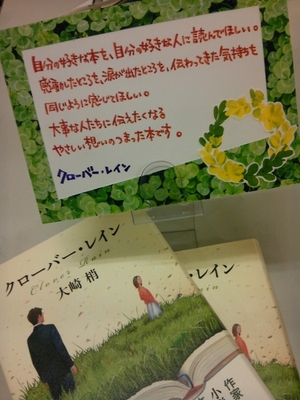 自分の好きな本を、自分の好きな人に読んでほしい。
感動したところを、涙が出たところを、伝わってきた気持ちを
同じように感じてほしい。
大事な人たちに伝えたくなる
やさしい想いのつまった本です。
クローバー・レイン
クローバー・レイン
Clover Rain
大崎 梢
・レイン
Rain
作家
小